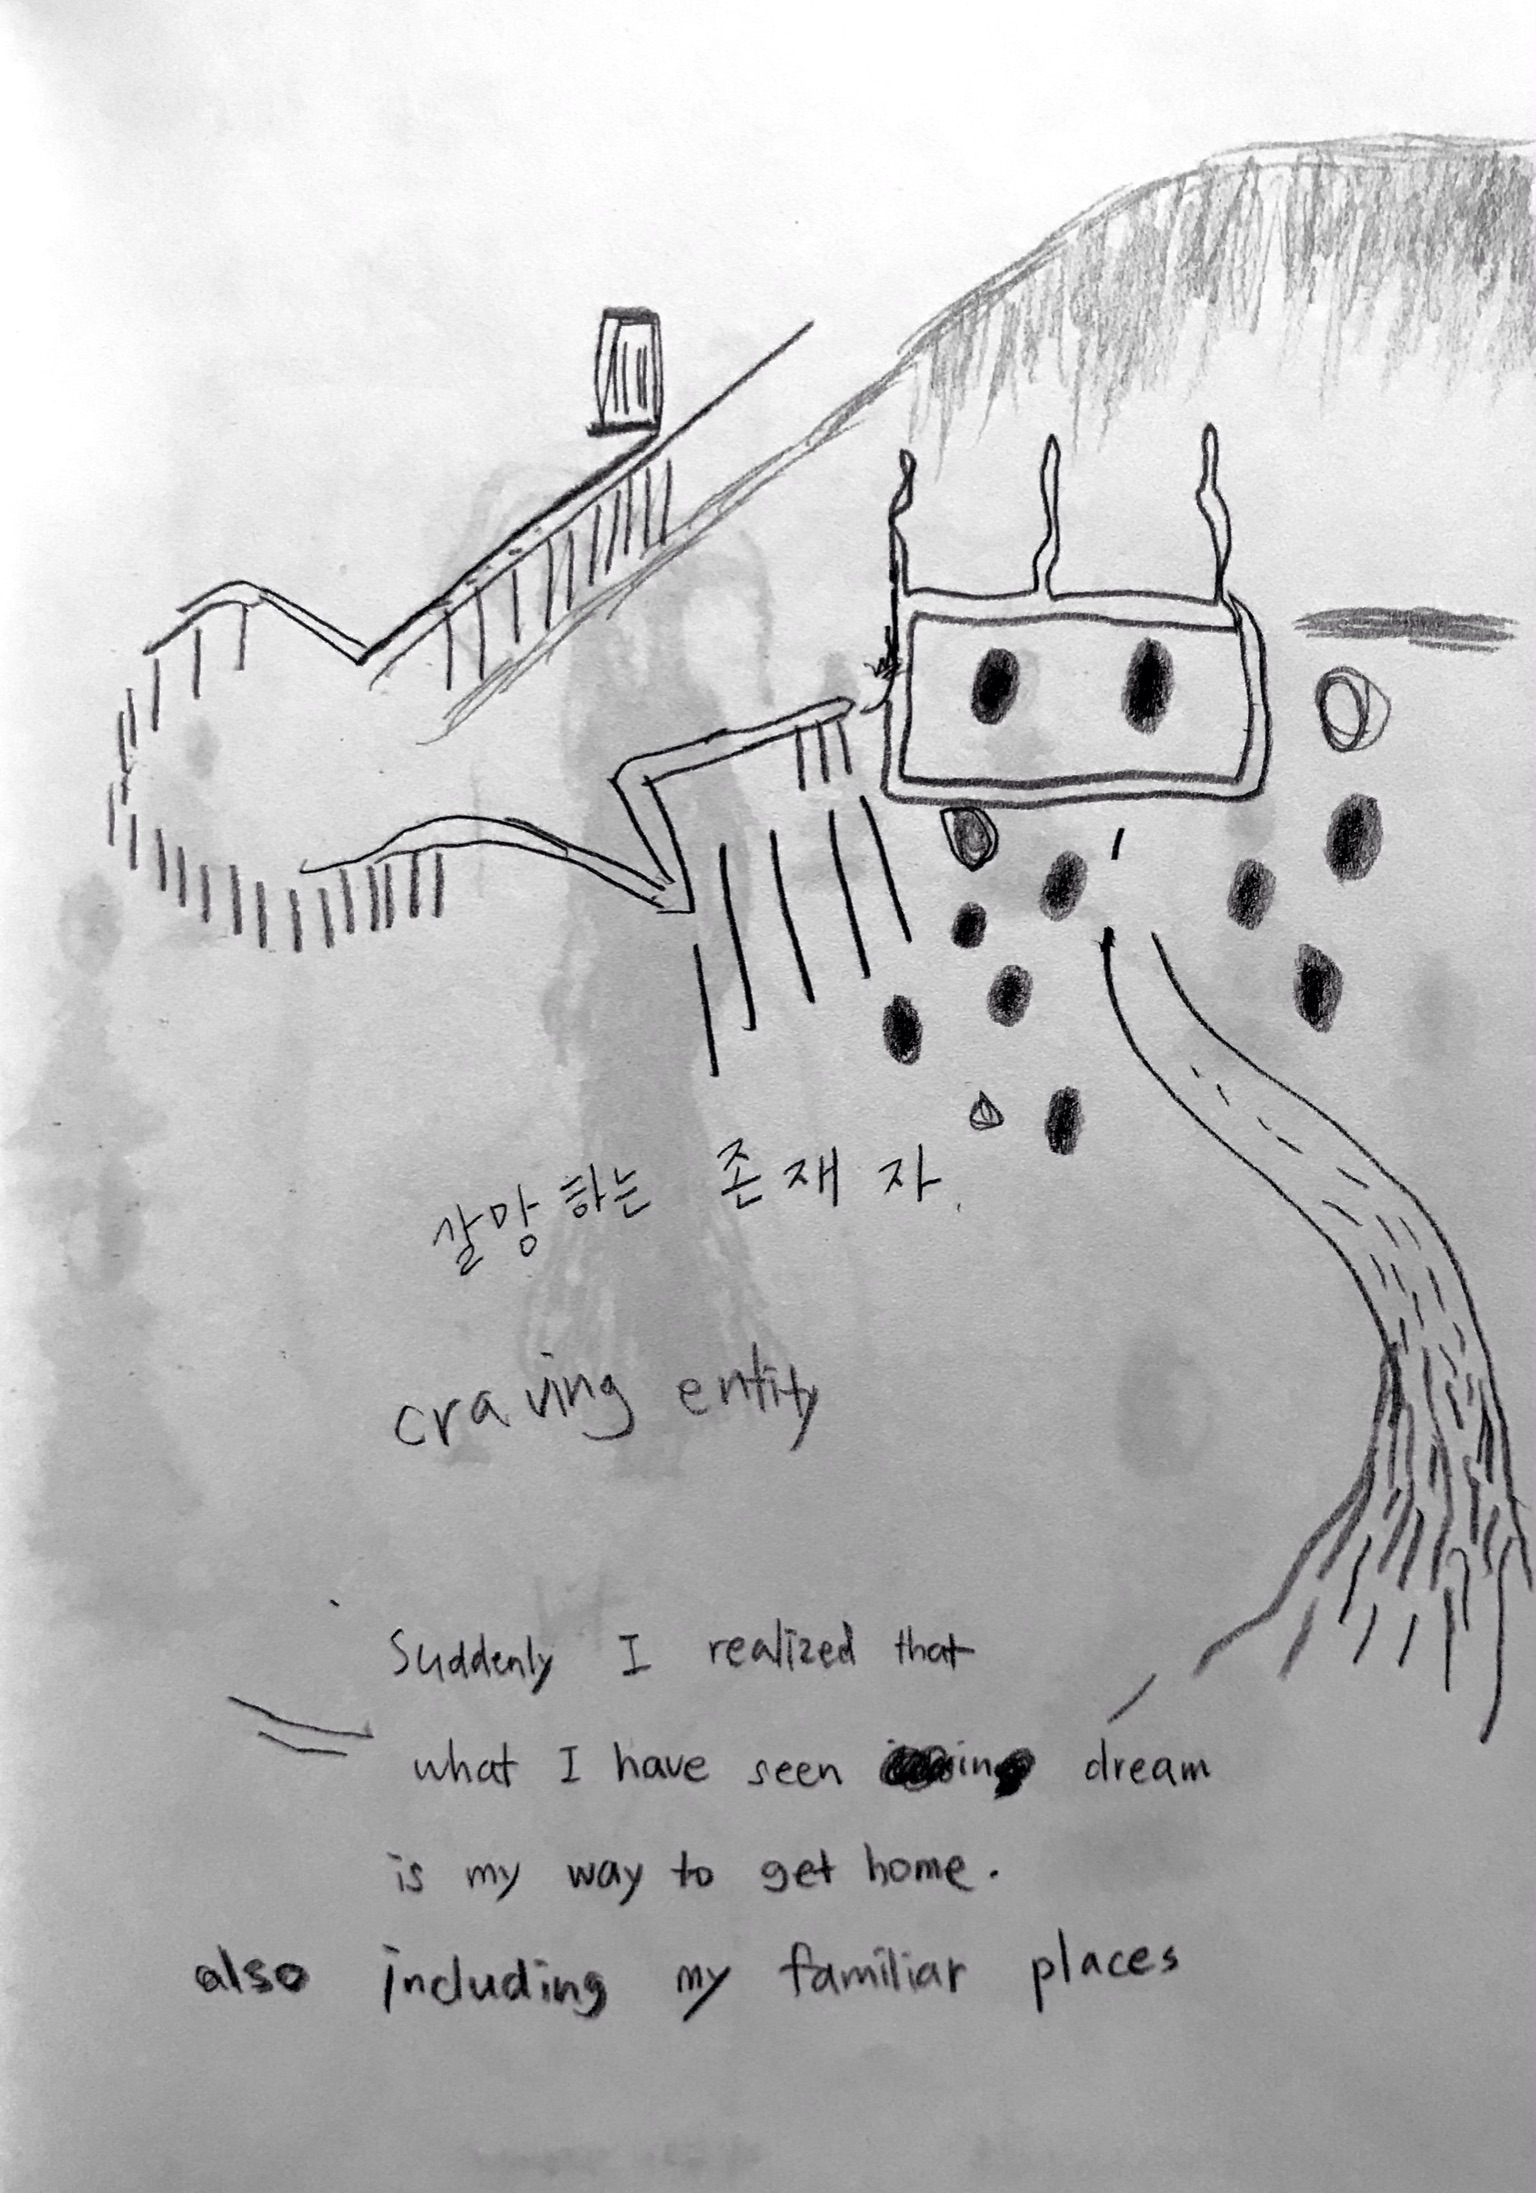 갈망하는 존재자.
craving entity
Suddenly I realized that
what I have seen in dream
is my way to get home.
also including my familiar places